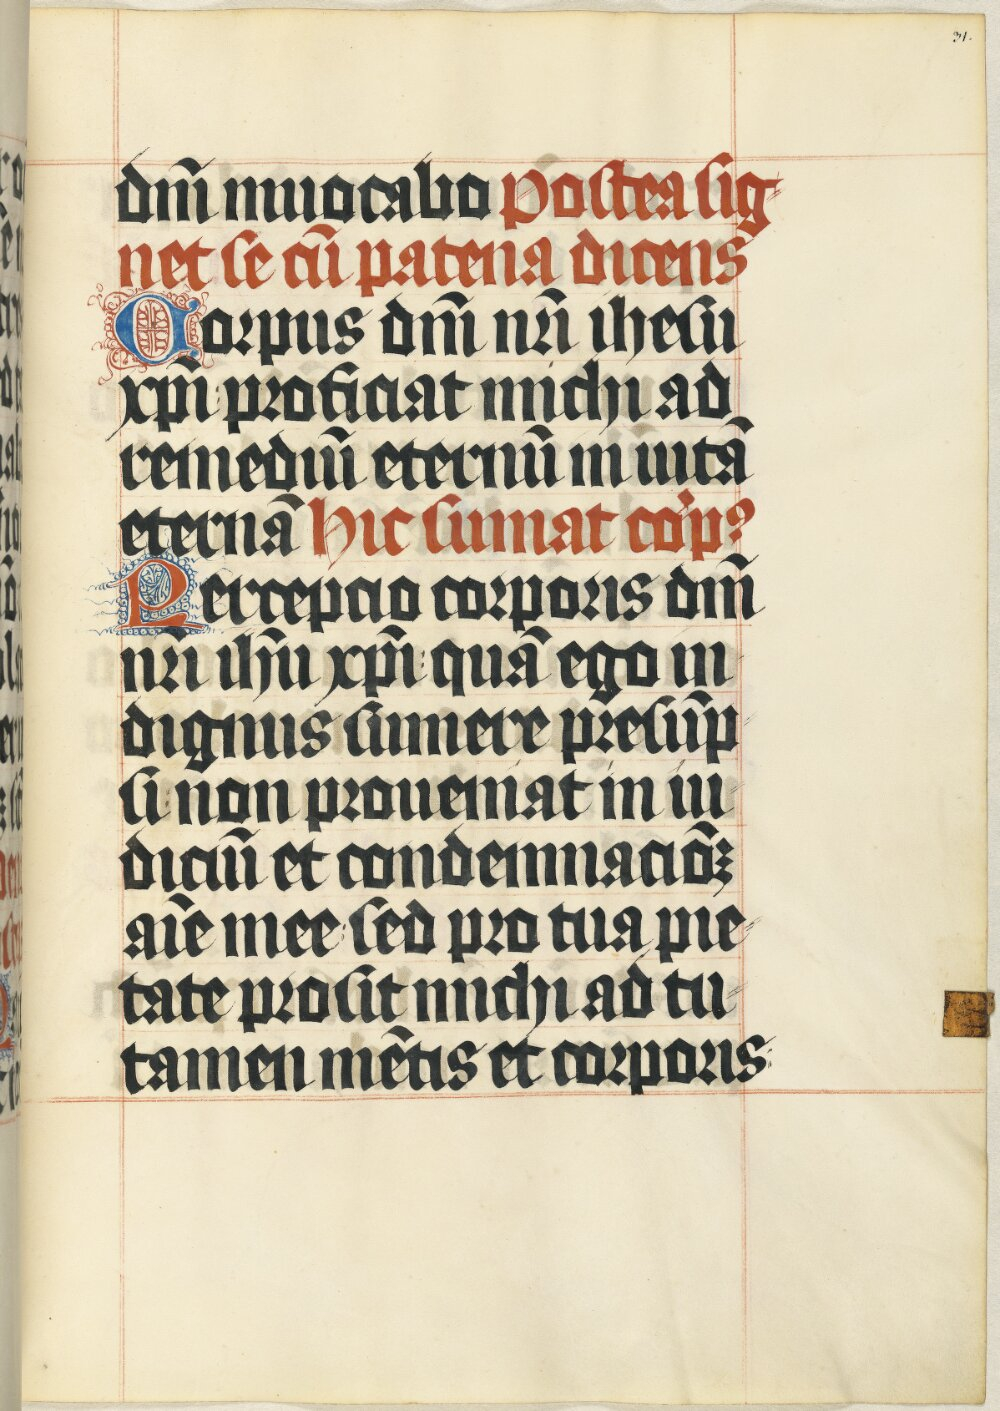 31.
dm̄ inuocabo Postea sig
net se cū patena dicens
Corpus dm̄ nr̄i ihesu
xp̄i proficiat michi ad
remediū eternū in uitā
eternā Hic sumat corp⁹
Percepcio corporis dm̄
nr̄i ihū xp̄i quā ego in
dignus sumere presūp
si non proueniat in iu
diciū et condemnaciōꝫ
aīe mee sed pro tua pie
tate prosit michi ad tu
tamen mētis et corporis